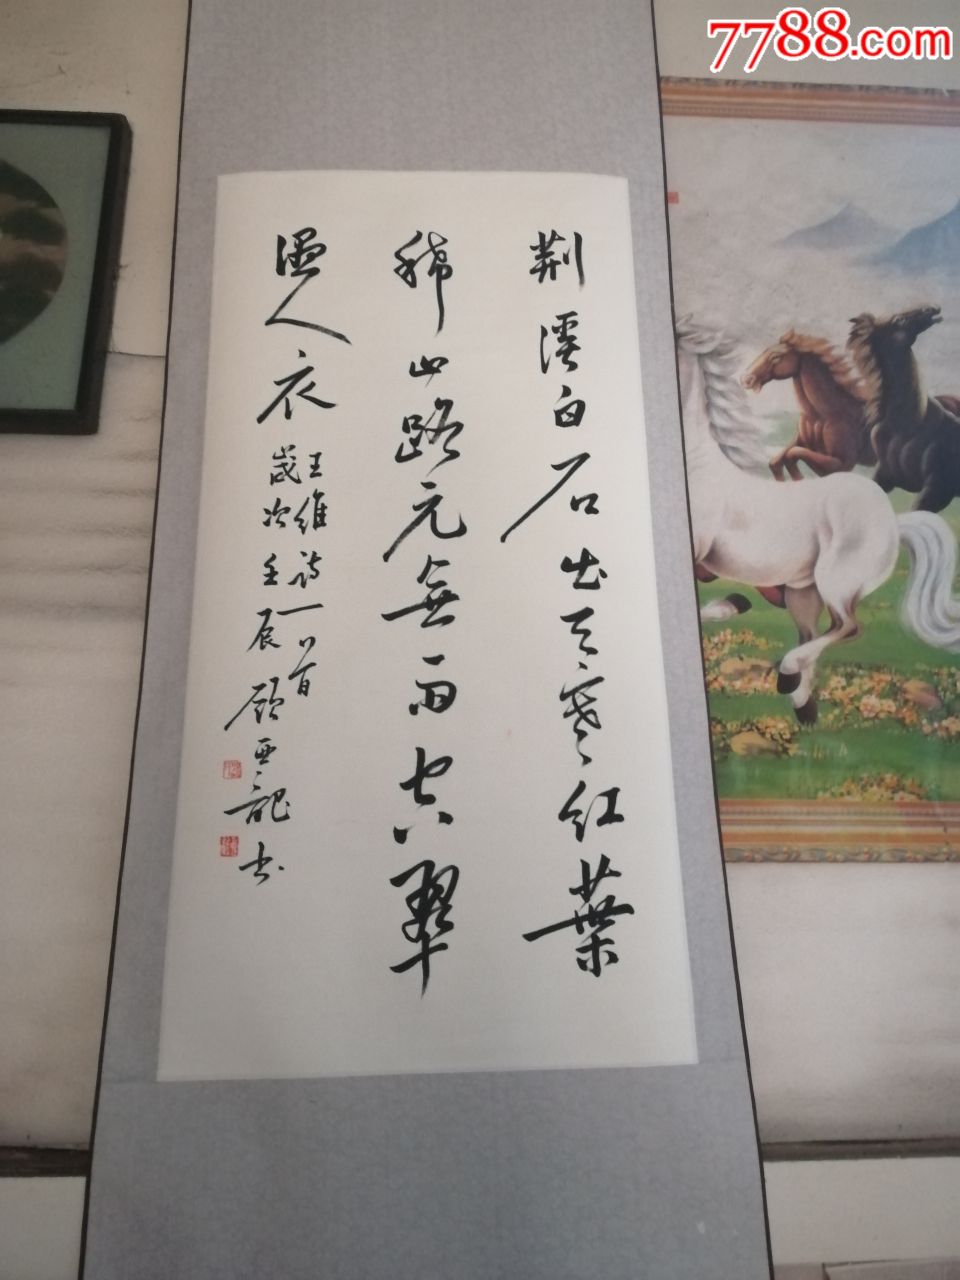 7788.com
荆溪白石出天寒红葉
稀山路元無雨空翠
濕人衣
王维诗一首
歲次壬辰顾亚龍书